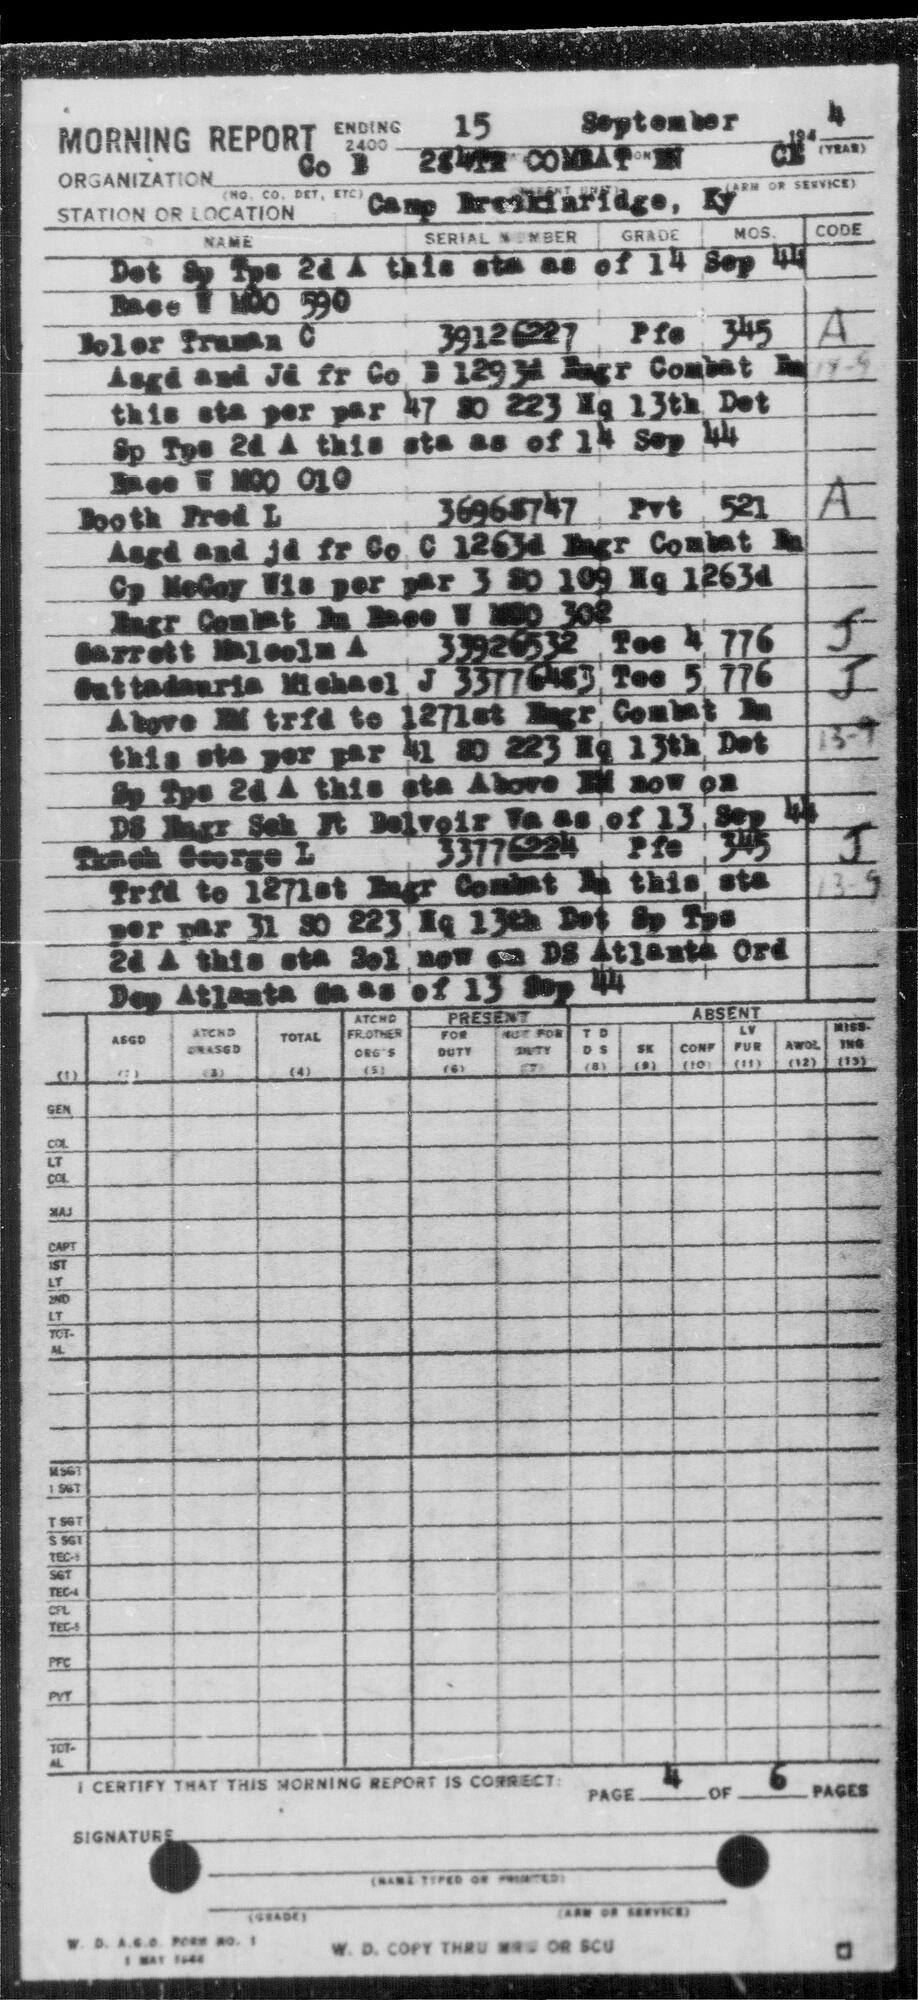 MORNING REPORT ENDING 2400 15 September 194 4 (YEAR)
ORGANIZATION Co B 284TH COMBAT BN CE
(HQ. CO, DET, ETC) (PARENT UNIT) (ARM OR SERVICE)
STATION OR LOCATION Camp Breckinridge, Ky
NAME SERIAL NUMBER GRADE MOS. CODE
Det Sp Tps 2d A this sta as of 14 Sep 44
Race W MCO 590
Boler Truman C 39126227 Pfc 345 A
Asgd and Jd fr Co B 1293d Engr Combat Bn 14-9
this sta per par 47 SO 223 Hq 13th Det
Sp Tps 2d A this sta as of 14 Sep 44
Race W MCO 010
Booth Fred L 36968747 Pvt 521 A
Asgd and jd fr Co C 1263d Engr Combat Bn
Cp McCoy Wis per par 3 SO 109 Hq 1263d
Engr Combat Bn Race W 302
Garrett Malcolm A 33926532 Tec 4 776 J
Guttadauria Michael J 33776483 Tec 5 776 J
Above EM trfd to 1271st Engr Combat Bn
this sta per par 41 SO 223 Hq 13th Det 13-9
Sp Tps 2d A this sta Above EM now on
DS Engr Sch Ft Belvoir Va as of 13 Sep 44
Tkach George L 33776224 Pfc 345 J
Trfd to 1271st Engr Combat Bn this sta 13-9
per par 31 SO 223 Hq 13th Det Sp Tps
2d A this sta Sol now on DS Atlanta Ord
Dep Atlanta Ga as of 13 Sep 44
PRESENT ABSENT
(1) ASGD (2) ATCHD UNASGD (3) TOTAL (4) ATCHD FR.OTHER ORG'S (5) FOR DUTY (6) NOT FOR DUTY (7) T D D S (8) SK (9) CONF (10) LV FUR (11) AWOL (12) MISS-ING (13)
GEN
COL
LT
COL
MAJ
CAPT
1ST
LT
2ND
LT
TOT-
AL
M SGT
1 SGT
T SGT
S SGT
TEC-3
SGT
TEC-4
CPL
TEC-5
PFC
PVT
TOT-
AL
I CERTIFY THAT THIS MORNING REPORT IS CORRECT:
PAGE 4 OF 6 PAGES
SIGNATURE
(NAME TYPED OR PRINTED)
(GRADE) (ARM OR SERVICE)
W. D. A.G.O. FORM NO. 1
1 MAY 1944
W. D. COPY THRU MRU OR SCU